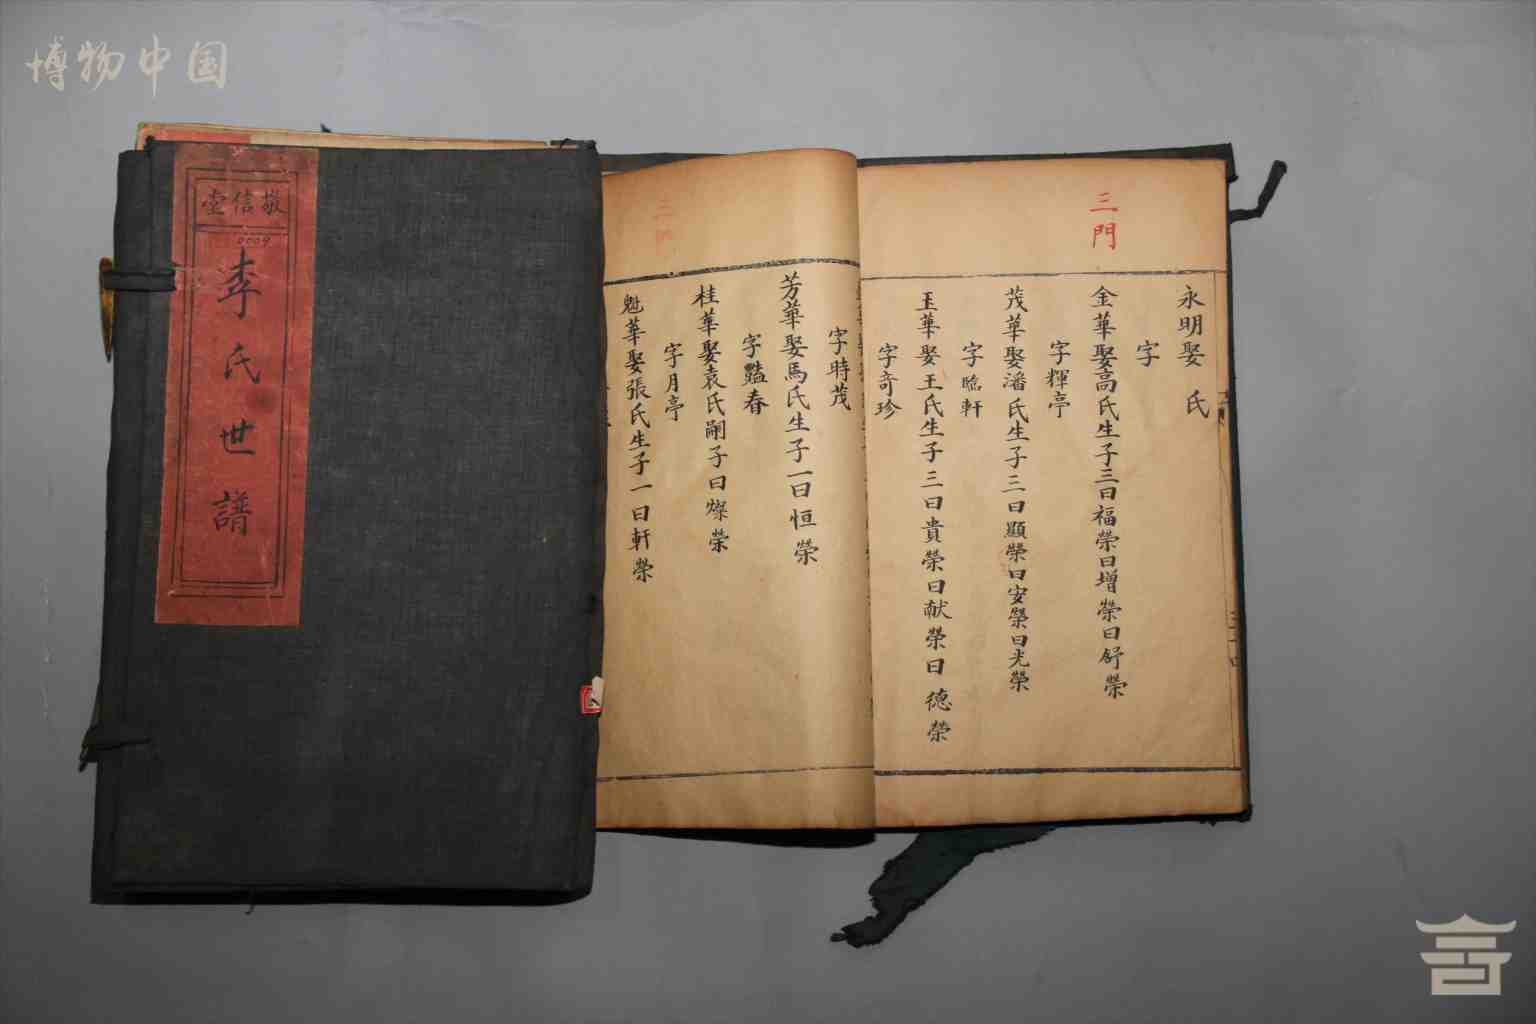 博物中国
敬信堂
0009
李氏世譜
三門
永明娶 氏
字
金華娶高氏生子三曰福榮曰增榮曰舒榮
字輝亭
茂華娶潘氏生子三曰顯榮曰安榮曰光榮
字臨軒
玉華娶王氏生子三曰貴榮曰献榮曰德榮
字奇珍
字時茂
芳華娶馬氏生子一曰恒榮
字豔春
桂華娶袁氏嗣子曰燦榮
字月亭
魁華娶張氏生子一曰軒榮